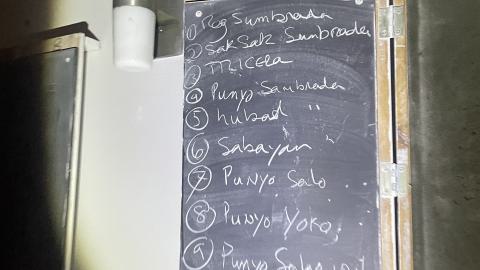 ① Reg Sumbrada
② Sak Sak Sumbrada
③ TRICERA
④ Punyo Sambrada
⑤ hubad "
⑥ Sabayan "
⑦ Punyo Salo
⑧ Punyo Yoko
⑨ Punyo